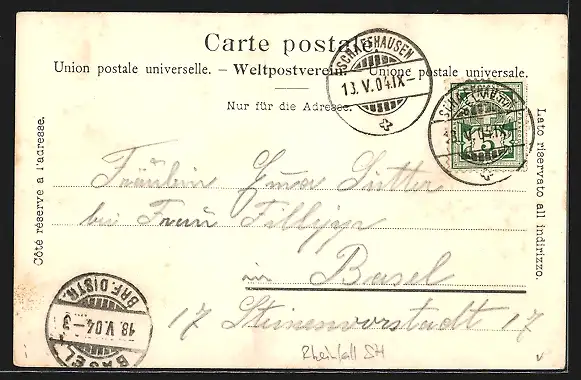 Carte postale.
Union postale universelle. – Weltpostverein. Unione postale universale.
Nur für die Adresse.
Côté réservé à l'adresse.
Lato riservato all indirizzo.
SCHAFFHAUSEN
13. V. 04. IX –
SCHAFFHAUSEN
5
Fräulein Emma Sutter
bei Frau
in Basel
17 Steinenvorstadt 17
BASEL
18. V. 04 – 3
BRF. DISTR.
Rheinfall SH